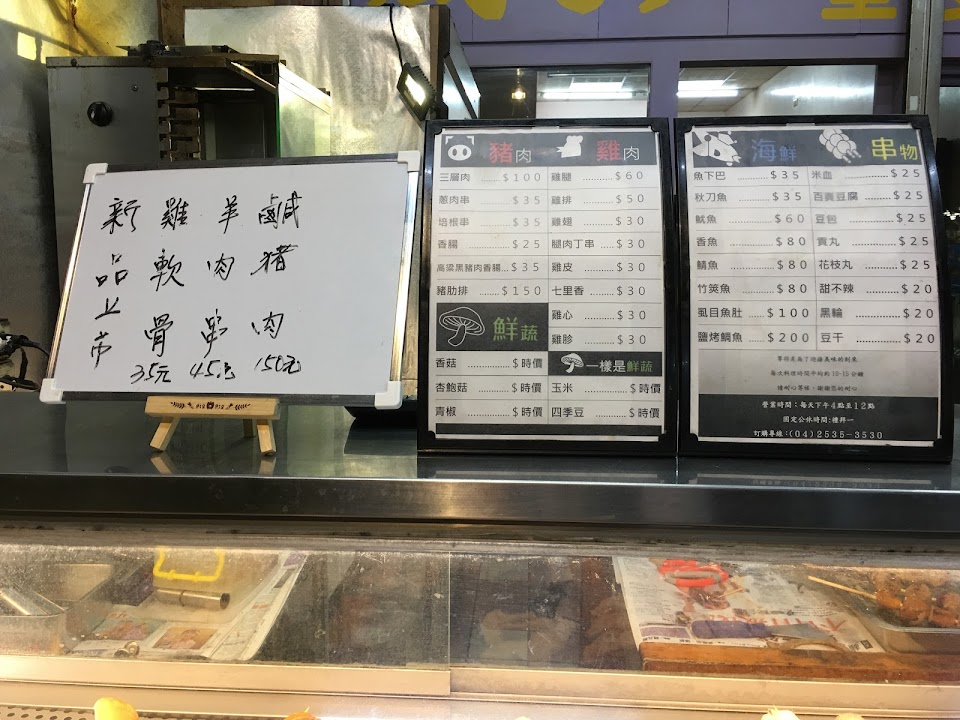 新品上市
雞軟骨 35元
羊肉串 45元
鹹豬肉 150元
豬肉
三層肉 ........$100
蔥肉串 ........$35
培根串 ........$35
香腸 ........$25
高粱黑豬肉香腸...$35
豬肋排 ........$150
鮮蔬
香菇 ........$時價
杏鮑菇 ........$時價
青椒 ........$時價
雞肉
雞腿 ........$60
雞排 ........$50
雞翅 ........$30
腿肉丁串 ...$30
雞皮 ........$30
七里香 ........$30
雞心 ........$30
雞胗 ........$30
一樣是鮮蔬
玉米 ........$時價
四季豆 ........$時價
海鮮
魚下巴 ........$35
秋刀魚 ........$35
魷魚 ........$60
香魚 ........$80
鯖魚 ........$80
竹筴魚 ........$80
虱目魚肚 ........$100
鹽烤鯛魚 ........$200
串物
米血 ........$25
百頁豆腐 ........$25
豆包 ........$25
貢丸 ........$25
花枝丸 ........$25
甜不辣 ........$20
黑輪 ........$20
豆干 ........$20
營業時間：每天下午4點至12點
訂購專線：(04)2535-3530